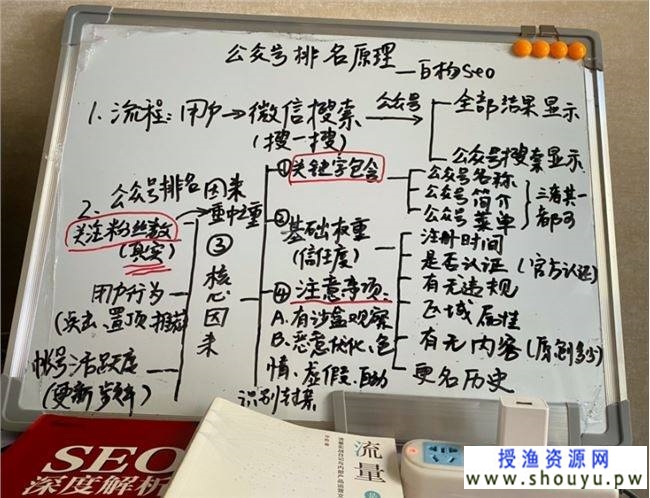 公众号排名原理_百构seo
1. 流程: 用户→微信搜索
(搜一搜)
公众号
全部结果显示
公众号搜索显示
2、公众号排名因来
重中之重
关注粉丝数
(真实)
用户行为
(点击、置顶、推荐)
帐号活跃度
(更新频率)
③核心因来
①关键字包含
公众号名称
公众号简介
公众号菜单
三者其一
都可
②
基础权重
(信任度)
注册时间
是否认证(官方认证)
有无违规
区域属性
有无内容(原创多少)
更名历史
④注意事项
A.有沙盒观察
B.恶意优化、色
情、虚假、自动
识别封禁
SEO
深度解析
流量
授渔资源网
www.shouyu.pw